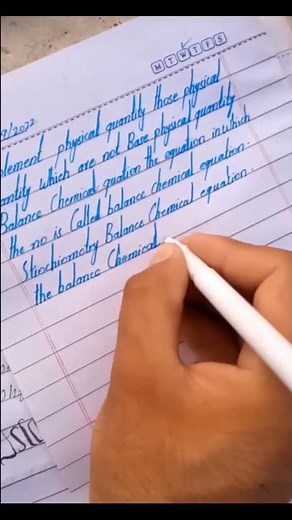 M T W T F S
/2022
element physical quantity those physical
antity which are not Base physical quantity
Balance Chemical quation the equation in which
the no is Called balance chemical equation.
Stiochiomotry Balance Chemical equation.
the balance Chemical